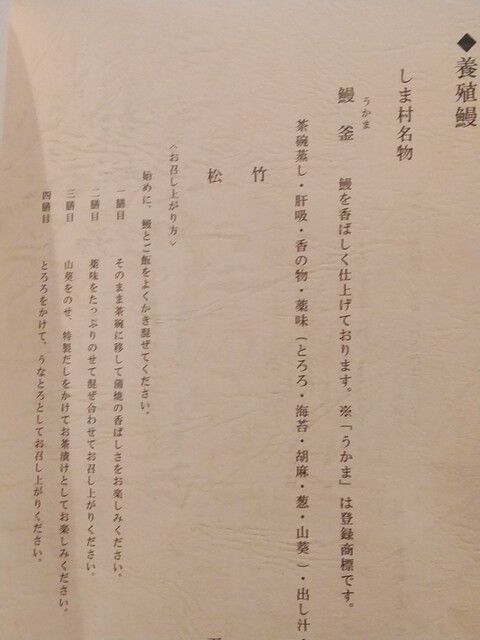 ◆養殖鰻
しま村名物
うかま
鰻釜 鰻を香ばしく仕上げております。※「うかま」は登録商標です。
茶碗蒸し・肝吸・香の物・薬味(とろろ・海苔・胡麻・葱・山葵)・出し汁・
竹
松
〈お召し上がり方〉
始めに、鰻とご飯をよくかき混ぜてください。
一膳目 そのまま茶碗に移して蒲焼の香ばしさをお楽しみください。
二膳目 薬味をたっぷりのせて混ぜ合わせてお召し上がりください。
三膳目 山葵をのせ、特製だしをかけてお茶漬けとしてお楽しみください。
四膳目 とろろをかけて、うなとろとしてお召し上がりください。